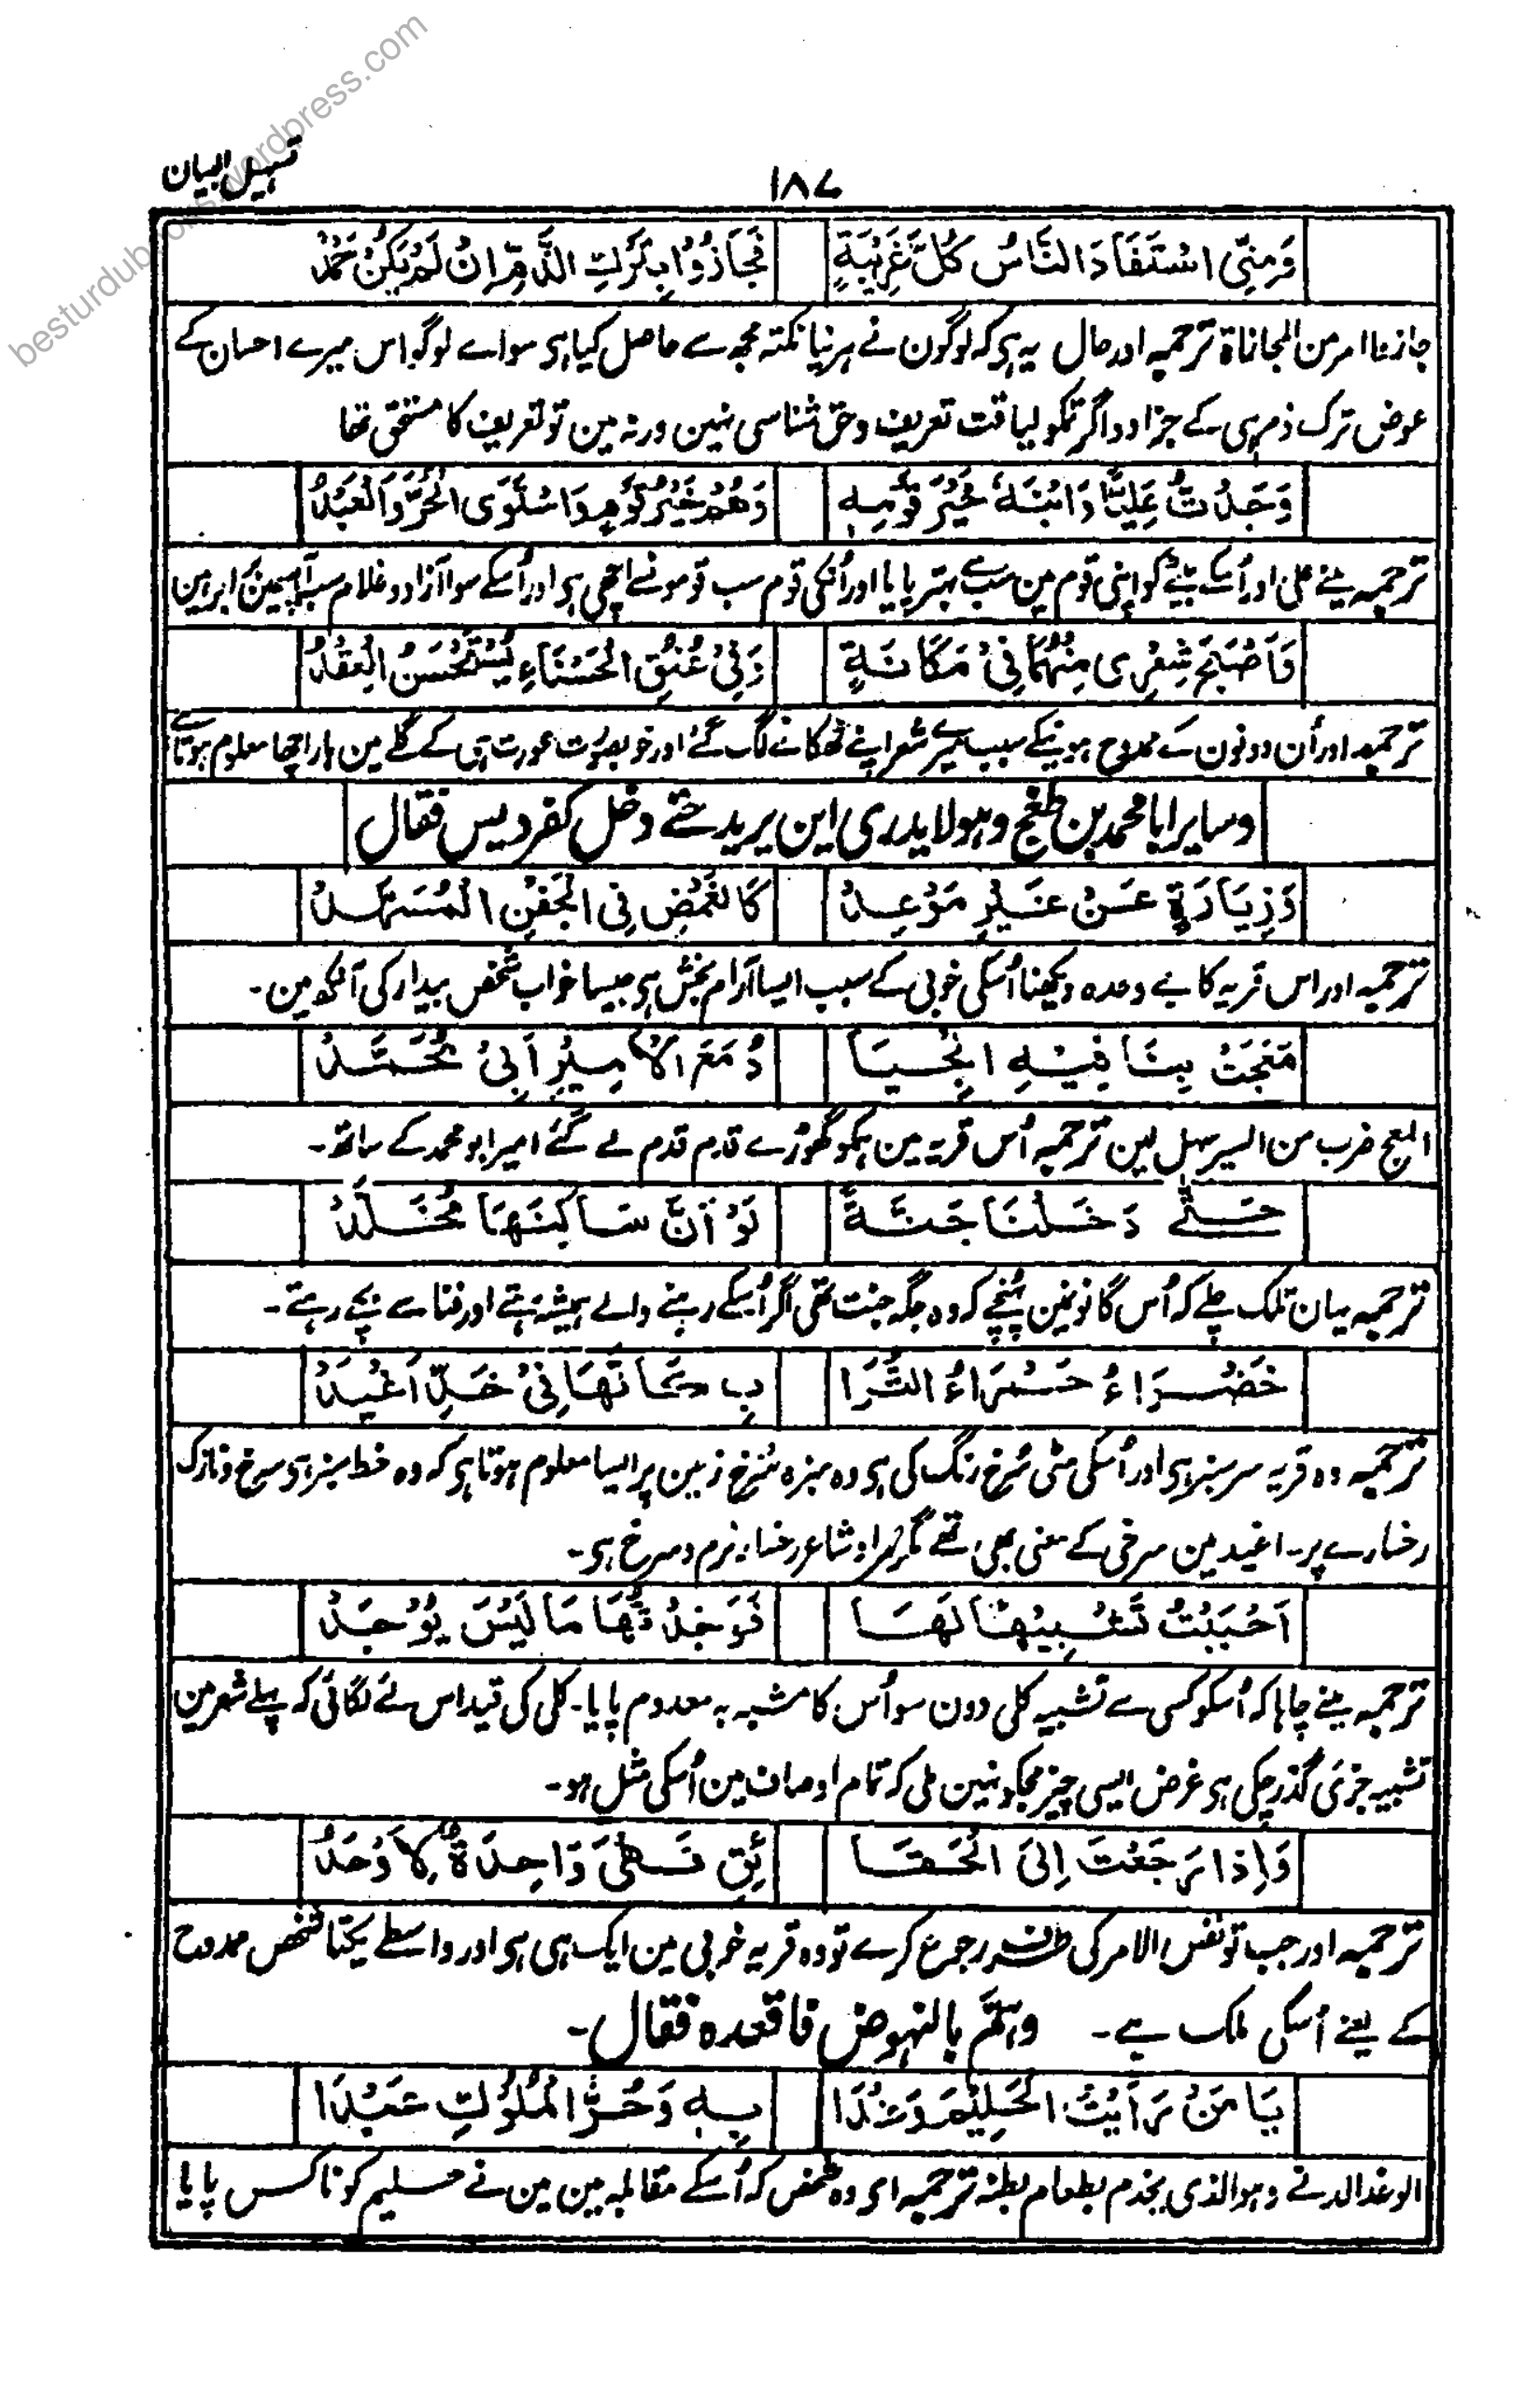 تسہیل البیان
۱۸۷
وَمِنِّي اسْتَفَادَ النَّاسُ كُلَّ غَرِيْبَةٍ فَجَازُوْا بِتَرْكِ الذَّمِّ اِنْ لَمْ يَكُنْ حَمْدُ
جازوا امر من المجازاة ترجمہ اور حال یہ ہی کہ لوگون نے ہر نیا نکتہ مجھ سے حاصل کیا ہی سو اے لوگو اس میرے احسان کے
عوض ترک ذم ہی کے جزا دو اگر تمکو لیاقت تعریف و حق شناسی نہین ورنہ مین تو تعریف کا مستحق تھا
وَجَدْتُ عَلِيًّا وَابْنَهٗ خَيْرَ قَوْمِهٖ وَهُمْ خَيْرُ قَوْمٍ وَاسْتَوَى الْحُرُّ وَالْعَبْدُ
ترجمہ مینے علی اور اُسکے بیٹے کو اپنی قوم مین سب سے بہتر پایا اور اُنکی قوم سب قومونسے اچھی ہی اور اُسکے سوا آزاد و غلام سب آپسمین برابر ہین
وَاَصْبَحَ شِعْرِي مِنْهُمَا فِيْ مَكَانَةٍ وَفِيْ عُنُقِ الْحَسْنَاءِ يُسْتَحْسَنُ الْعِقْدُ
ترجمہ اور اُن دونون کے ممدوح ہونیکے سبب میرے شعر اپنے ٹھکانے لگ گئے اور خوبصورت عورت ہی کے گلے مین ہار اچھا معلوم ہوتا ہے
وساير ابا محمد بن طغج وہو لا یدری این یرید حتے دخل کفردیس فقال
وَزِيَارَةٍ عَنْ غَيْرِ مَوْعِدْ كَالْغَمْضِ فِي الْجَفْنِ الْمُسَهَّدْ
ترجمہ اور اس قریہ کا بے وعدہ دیکھنا اُسکی خوبی کے سبب ایسا آرام بخش ہی جیسا خواب شخص بیدار کی آنکھ مین۔
مَعَجَتْ بِنَا فِيْهِ الْجِيَا دُ مَعَ الْاَمِيْرِ اَبِيْ مُحَمَّدْ
المعج ضرب من السیر سہل لین ترجمہ اُس قریہ مین ہمکو گھوڑے قدم قدم لے گئے امیر ابو محمد کے ساتھ۔
حَتّٰى دَخَلْنَا جَنَّةً لَوْ اَنَّ سَاكِنَهَا مُخَلَّدْ
ترجمہ یہان تلک چلے کہ اُس گانؤ مین پہنچے کہ وہ جگہ جنت تھی اگر اُسکے رہنے والے ہمیشہ رہتے اور فنا سے بچے رہتے۔
خَضْرَاءُ حَمْرَاءُ التُّرَا بِ كَاَنَّهَا فِيْ خَدِّ اَغْيَدْ
ترجمہ وہ قریہ سرسبز ہی اور اُسکی مٹی سُرخ رنگ کی ہی وہ سبزہ سُرخ زمین پر ایسا معلوم ہوتا ہی کہ وہ خط سبز ہی سرخ و نازک
رخسارے پر۔ اغید مین سرخی کے معنی بھی تھے مگر مراد شاعر رخسارہ نرم و سرخ ہی۔
اَحْبَبْتُ تَشْبِيْهًا لَهَا فَوَجَدْتُّهَا مَا لَيْسَ يُوْجَدْ
ترجمہ مینے چاہا کہ اُسکو کسی سے تشبیہ کلی دون سو اُس کا مشبہ بہ معدوم پایا۔ کلی کی قید اس لئے لگائی کہ پہلے شعر مین
تشبیہ جزئی گذر چکی ہی غرض ایسی چیز مجکو نہین ملی کہ تمام اوصاف مین اُسکی مثل ہو۔
وَاِذَا رَجَعْتَ اِلَى الْحَقَا ئِقِ فَهْيَ وَاحِدَةٌ لِاَوْحَدْ
ترجمہ اور جب تو نفس الامر کی طرف رجوع کرے تو وہ قریہ خوبی مین ایک ہی ہی اور واسطے یکتا شخص ممدوح
کے یعنے اُسکی ملک ہے۔ وہمّ بالنہوض فاقعدہ فقال۔
يَا مَنْ رَاَيْتُ الْحَلِيْمَ وَغْدَا بِهٖ وَحُرَّ الْمُلُوْكِ عَبْدَا
الوغد الدنے وہو الذی یخدم بطعام بطنہ ترجمہ ای وہ شخص کہ اُسکے مقابلہ مین مین نے حلیم کو ناکس پایا
besturdubooks.wordpress.com